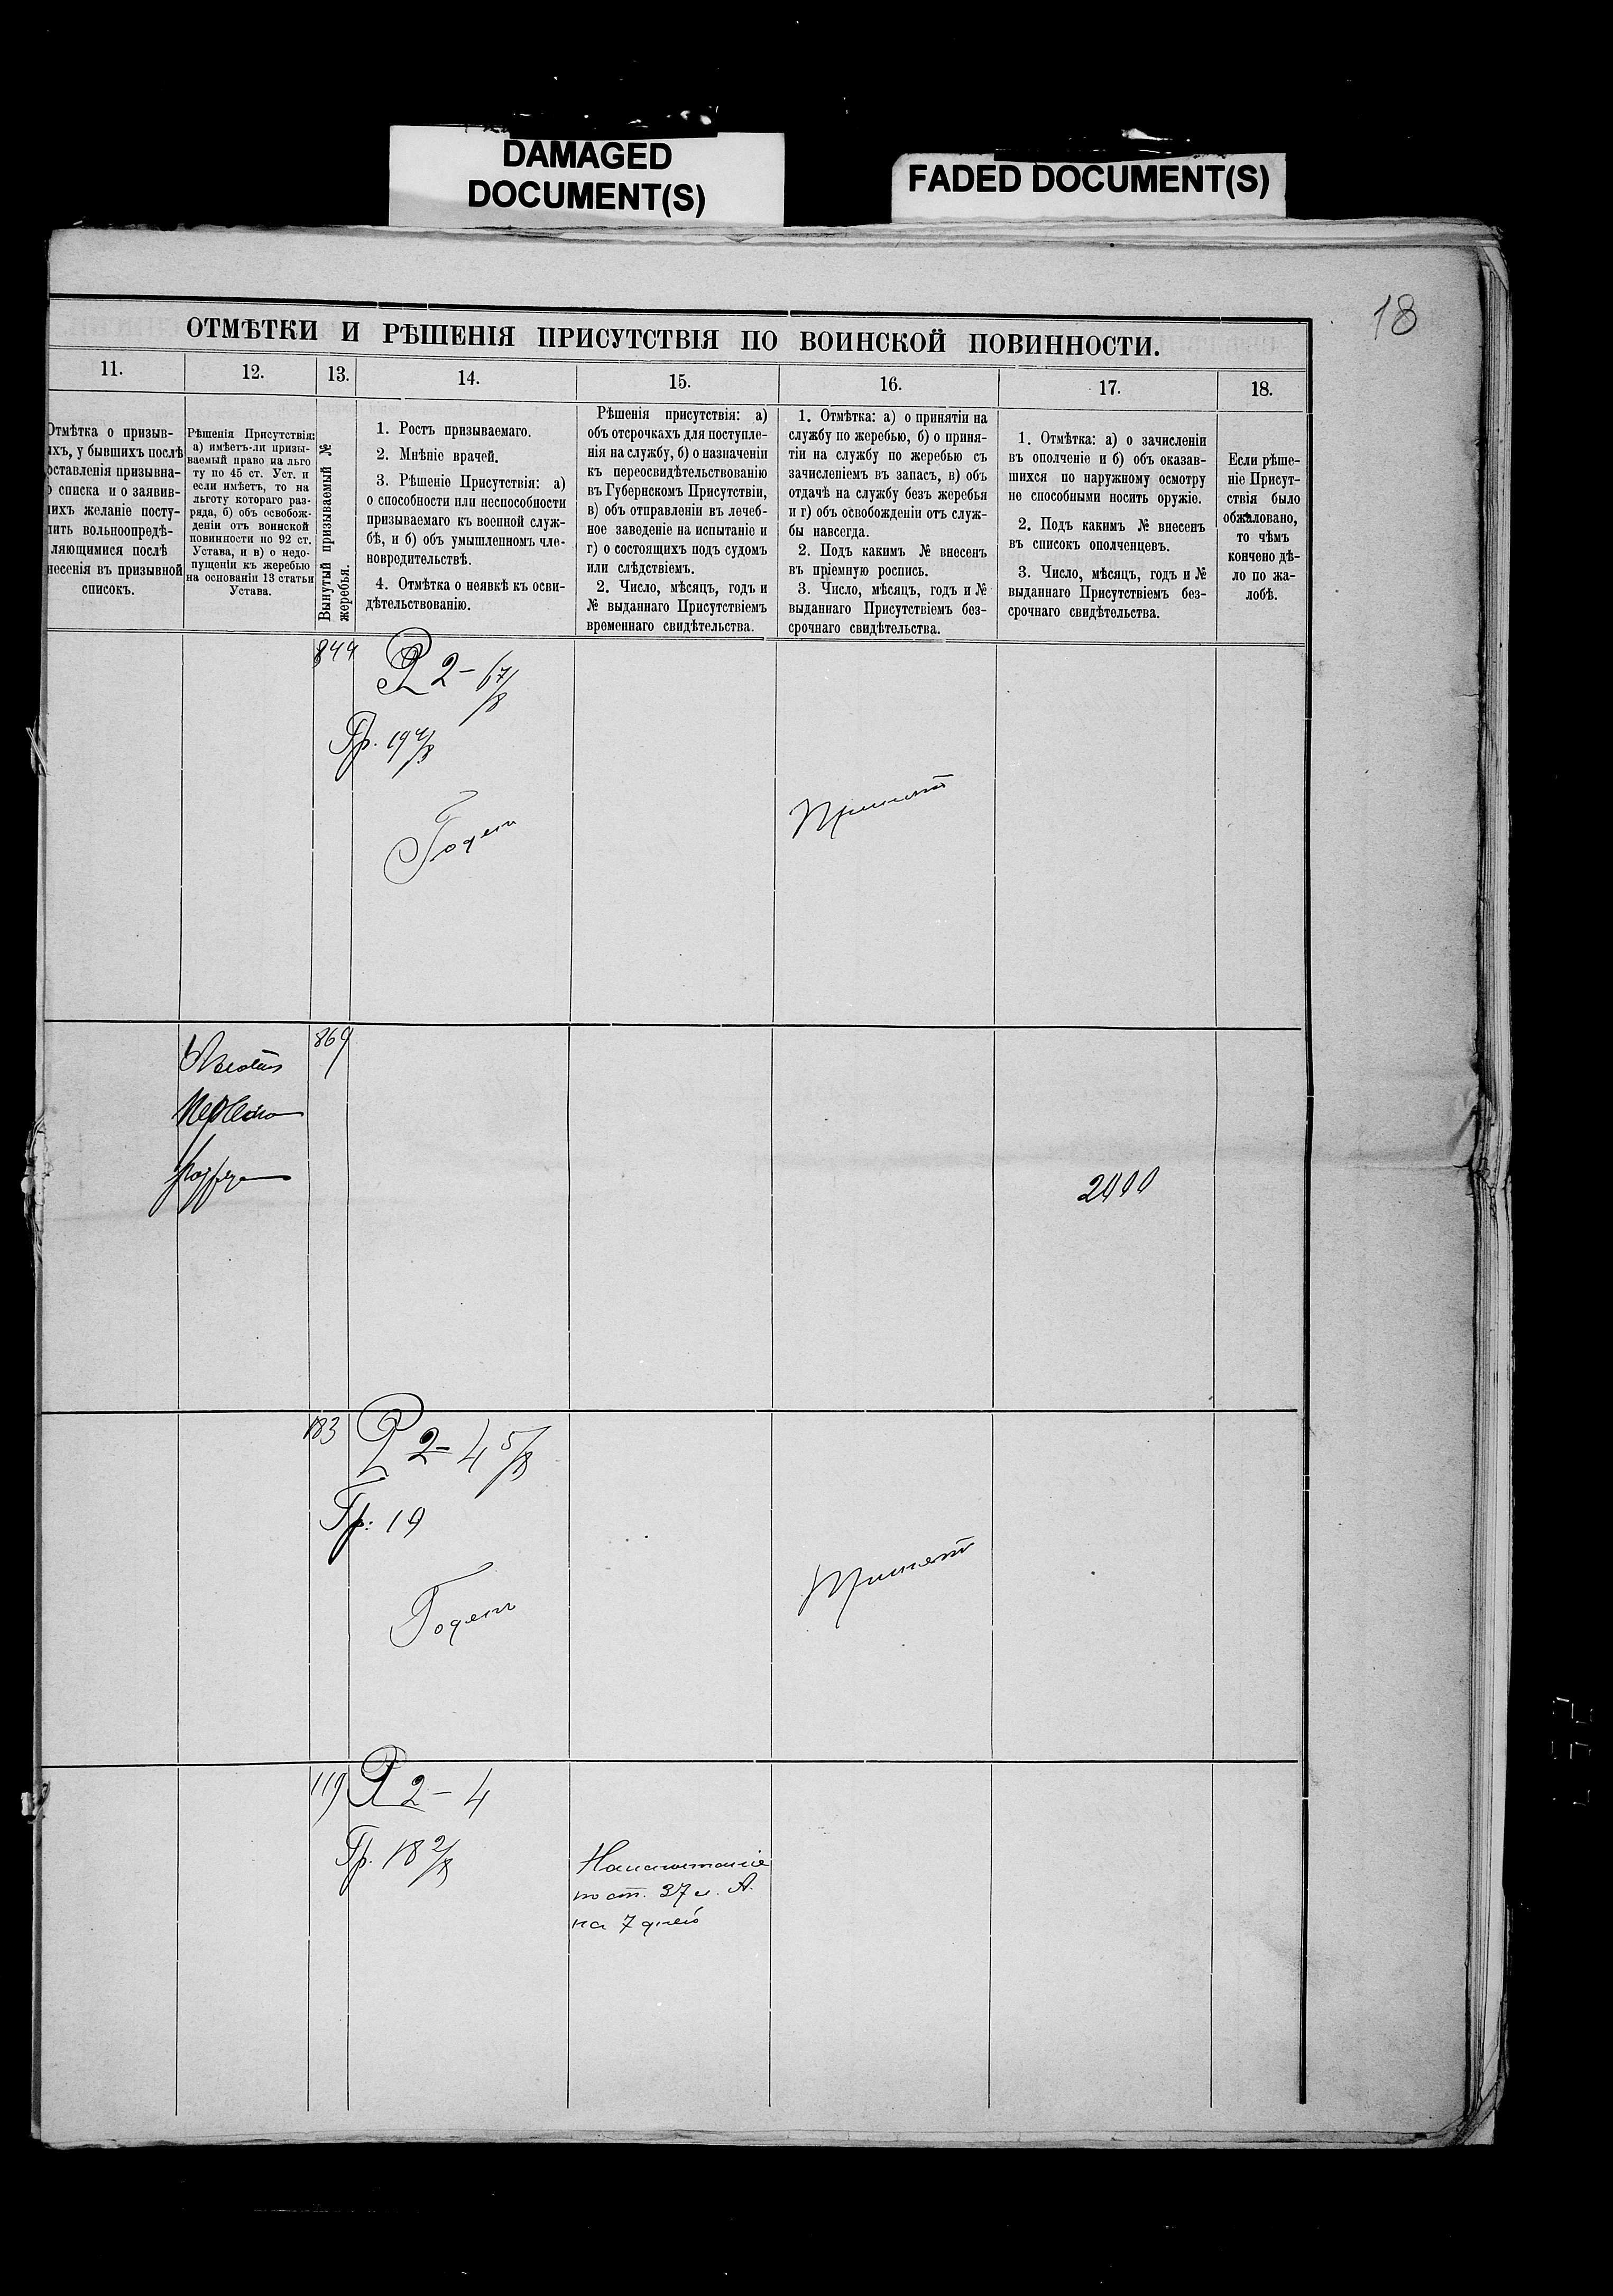 DAMAGED
DOCUMENT(S)
FADED DOCUMENT(S)
18
ОТМѢТКИ И РѢШЕНІЯ ПРИСУТСТВІЯ ПО ВОИНСКОЙ ПОВИННОСТИ.
11.
12.
13.
14.
15.
16.
17.
18.
Отмѣтка о призыв-
ихъ, у бывшихъ послѣ
оставленія призывна-
о списка и о заявив-
ихъ желаніе посту-
пить вольноопредѣ-
ляющимися послѣ
несенія въ призывной
списокъ.
Рѣшенія Присутствія:
а) имѣетъ-ли призы-
ваемый право на льго
ту по 45 ст. Уст. и
если имѣетъ, то на
льготу котораго раз-
ряда, б) объ освобож-
деніи отъ воинской
повинности по 92 ст.
Устава, и в) о недо-
пущеніи къ жеребью
на основаніи 13 статьи
Устава.
Вынутый призываемый №
жеребья.
1. Ростъ призываемаго.
2. Мнѣніе врачей.
3. Рѣшеніе Присутствія: а)
о способности или неспособности
призываемаго къ военной служ-
бѣ, и б) объ умышленномъ чле-
новредительствѣ.
4. Отмѣтка о неявкѣ къ осви-
дѣтельствованію.
Рѣшенія присутствія: а)
объ отсрочкахъ для поступле-
нія на службу, б) о назначеніи
къ переосвидѣтельствованію
въ Губернскомъ Присутствіи,
в) объ отправленіи въ лечеб-
ное заведеніе на испытаніе и
г) о состоящихъ подъ судомъ
или слѣдствіемъ.
2. Число, мѣсяцъ, годъ и
№ выданнаго Присутствіемъ
временнаго свидѣтельства.
1. Отмѣтка: а) о принятіи на
службу по жеребью, б) о приня-
тіи на службу по жеребью съ
зачисленіемъ въ запасъ, в) объ
отдачѣ на службу безъ жеребья
и г) объ освобожденіи отъ служ-
бы навсегда.
2. Подъ какимъ № внесенъ
въ пріемную роспись.
3. Число, мѣсяцъ, годъ и №
выданнаго Присутствіемъ без-
срочнаго свидѣтельства.
1. Отмѣтка: а) о зачисленіи
въ ополченіе и б) объ оказав-
шихся по наружному осмотру
не способными носить оружіе.
2. Подъ какимъ № внесенъ
въ списокъ ополченцевъ.
3. Число, мѣсяцъ, годъ и №
выданнаго Присутствіемъ без-
срочнаго свидѣтельства.
Если рѣше-
ніе Присут-
ствія было
обжаловано,
то чѣмъ
кончено дѣ-
ло по жа-
лобѣ.
844
Р 2 - 6 7/8
Гр. 19 4/8
Годенъ
Принятъ
869
разряда
183
Р 2 - 4 5/8
Гр: 19
Годенъ
Принятъ
119
Р 2 - 4
Гр. 18 2/8
На испытаніе
по ст. 37 л. А.
на 7 дней